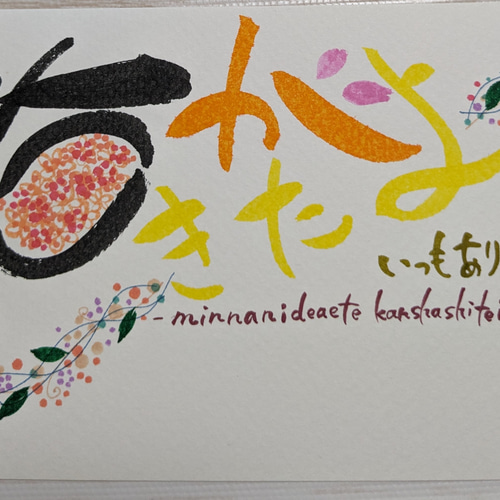 がよ
きた
いつもあり
-minnanideaete kanshashitei